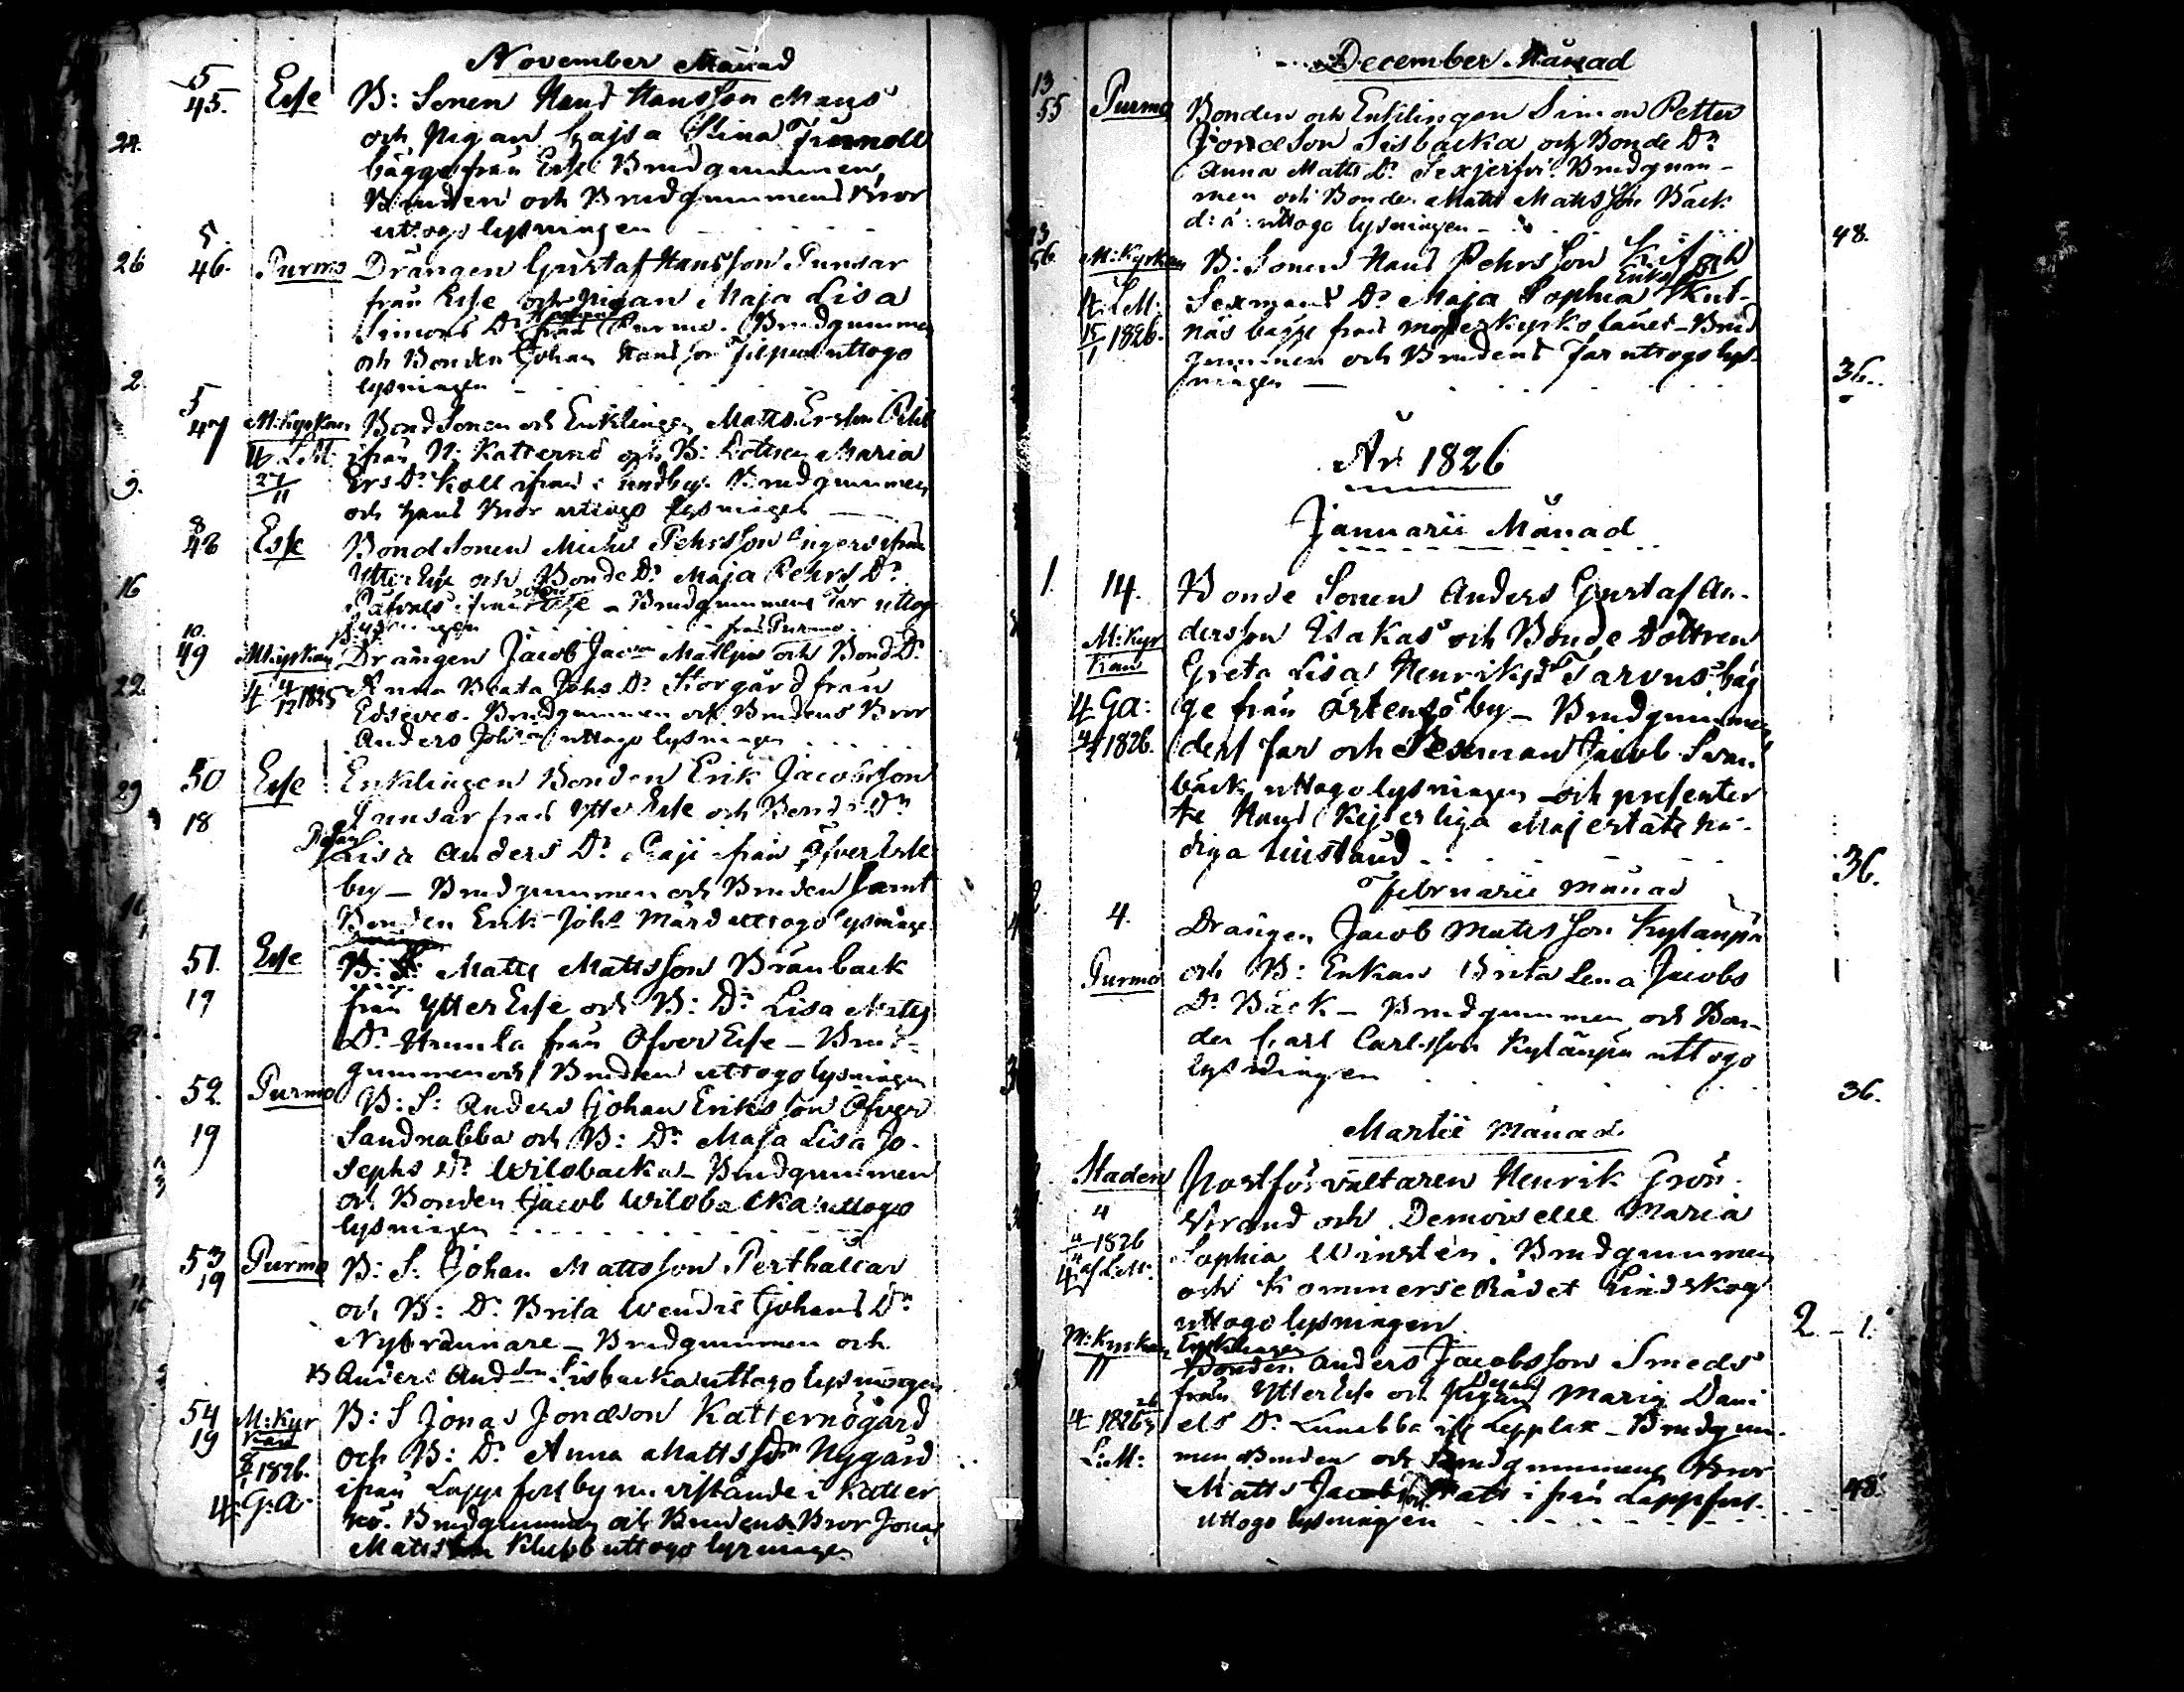 November Månad
5
45. Esse B: Sonen Hans Hansson Mans
och Pigan Cajsa Stina
bägge från Esse Brudgummen,
Bruden och Brudgummens Bror
uttogo lysningen
5.
46. Purmo Drängen Gustaf Hansson Punsar
från Esse och Pigan Maja Lisa
Simons Dr från Purmo. Brudgummen
och Bonden Johan Hansson uttogo
lysningen
5
47 M:kyrkan BondSonen och Enklingen Matts Ersson
4 L:M: ifrån N: Katternö och B: Dottren Maria
27/11 Ers Dr Koll ifrån Sundby. Brudgummen
och hans Bror uttogo lysningen
8
48 Esse BondSonen Michel Pehrsson ifrån
Ytter Esse och Bonde Dr Maja Pehrs Dr
ifrån Esse - Brudgummens Far uttog
lysningen
från Purmo
10.
49 M:kyrkan Drängen Jacob Jacsson och Bond Dr
4 4/12 1825 Anna Beata Johs Dr Storgård från
Edsevö. Brudgummen och Brudens Bror
Anders Johsson uttogo lysningen
50 Esse Enklingen Bonden Erik Jacobsson
18 Punsar från Ytter Esse och Bonds Dr
Pigan
Lisa Anders Dr från Öfveresse
by - Brudgummen och Bruden samt
Bonden Erik Johs Mård uttogo lysningen
51. Esse B: S: Matts Mattsson Brånback
19 från Ytter Esse och B: Dr Lisa Matts
Dr Humla från Öfver Esse - Brud-
gummen och Bruden uttogo lysningen
52. Purmo B: S: Anders Johan Eriksson Öfver
19 Sandnabba och B: Dr Maja Lisa Jo-
sephs Dr Wilobacka - Brudgummen
och Bonden Jacob Wilobacka uttogo
lysningen
53 Purmo B: S. Johan Mattsson Perthallar
19 och B: Dr Brita Wendis Johans Dr
Nybrännare - Brudgummen och
B Anders Andsson Sisbacka uttogo lysningen
54 M:kyrkan B: S Jonas Jonæson Katternögård
19 och B: Dr Anna Matts Dr Nygård
8/1 1826. ifrån Lappfors by nu vistande i Katter
4. G:A: nö. Brudgummen och Brudens Bror Jonas
Mattsson Klubb uttogo lysningen
December Månad
13
55 Purmo Bonden och Enklingen Simon Petter
Jonæson Sisbacka och Bonde Dr
Anna Matts Dr Sexjerfvi. Brudgum-
men och Bonden Matts Mattsson Back
d: ä: uttogo lysningen - 48.
13
56. M:kyrkan B: Sonen Hans Pehrsson
Enka
4. L:M: Sexmans Dr Maja Sophia Skut-
15/1 1826. näs bägge från moderkyrkolänet - Brud
gummen och Brudens Far uttogo lys-
ningen - 36.
År 1826
Januarii Månad
1. 14. Bonde Sonen Anders Gustaf An-
M:kyrkan dersson Isakas och Bonde Dottren
Greta Lisa Henriks Dr Tarvus bäg
4 GA: ge från Östensö by - Brudgumme
1826. ders Far och Sexman Jacob Svan
bäck uttogo lysningen och presenter
te Hans Kejserliga Majestäts Nå-
diga tillstånd 36.
Februarii Månad
2 4. Drängen Jacob Mattsson Kylänpä
Purmo och B: Enkan Brita Lena Jacobs
Dr Bäck - Brudgummen och Bon-
den Carl Carlsson Kylänpä uttogo
lysningen 36.
Martii Månad
Staden Postförvaltaren Henrik Grön-
4 strand och Demoiselle Maria
1826 Sophia Winstén. Brudgummen
4 af L:M: och Kommerse Rådet Lindskog
uttogo lysningen 2 - 1.
M:kyrkan Enklingen
11 Bonden Anders Jacobsson Smeds
från Ytter Esse och Pigan Maria Dani
4 1826 26/3 els Dr Lunabba if: Lepplax - Brudgum-
L:M: men Bruden och Brudgummens Bror
Matts Jacobsson ifrån Lappfors 48.
uttogo lysningen